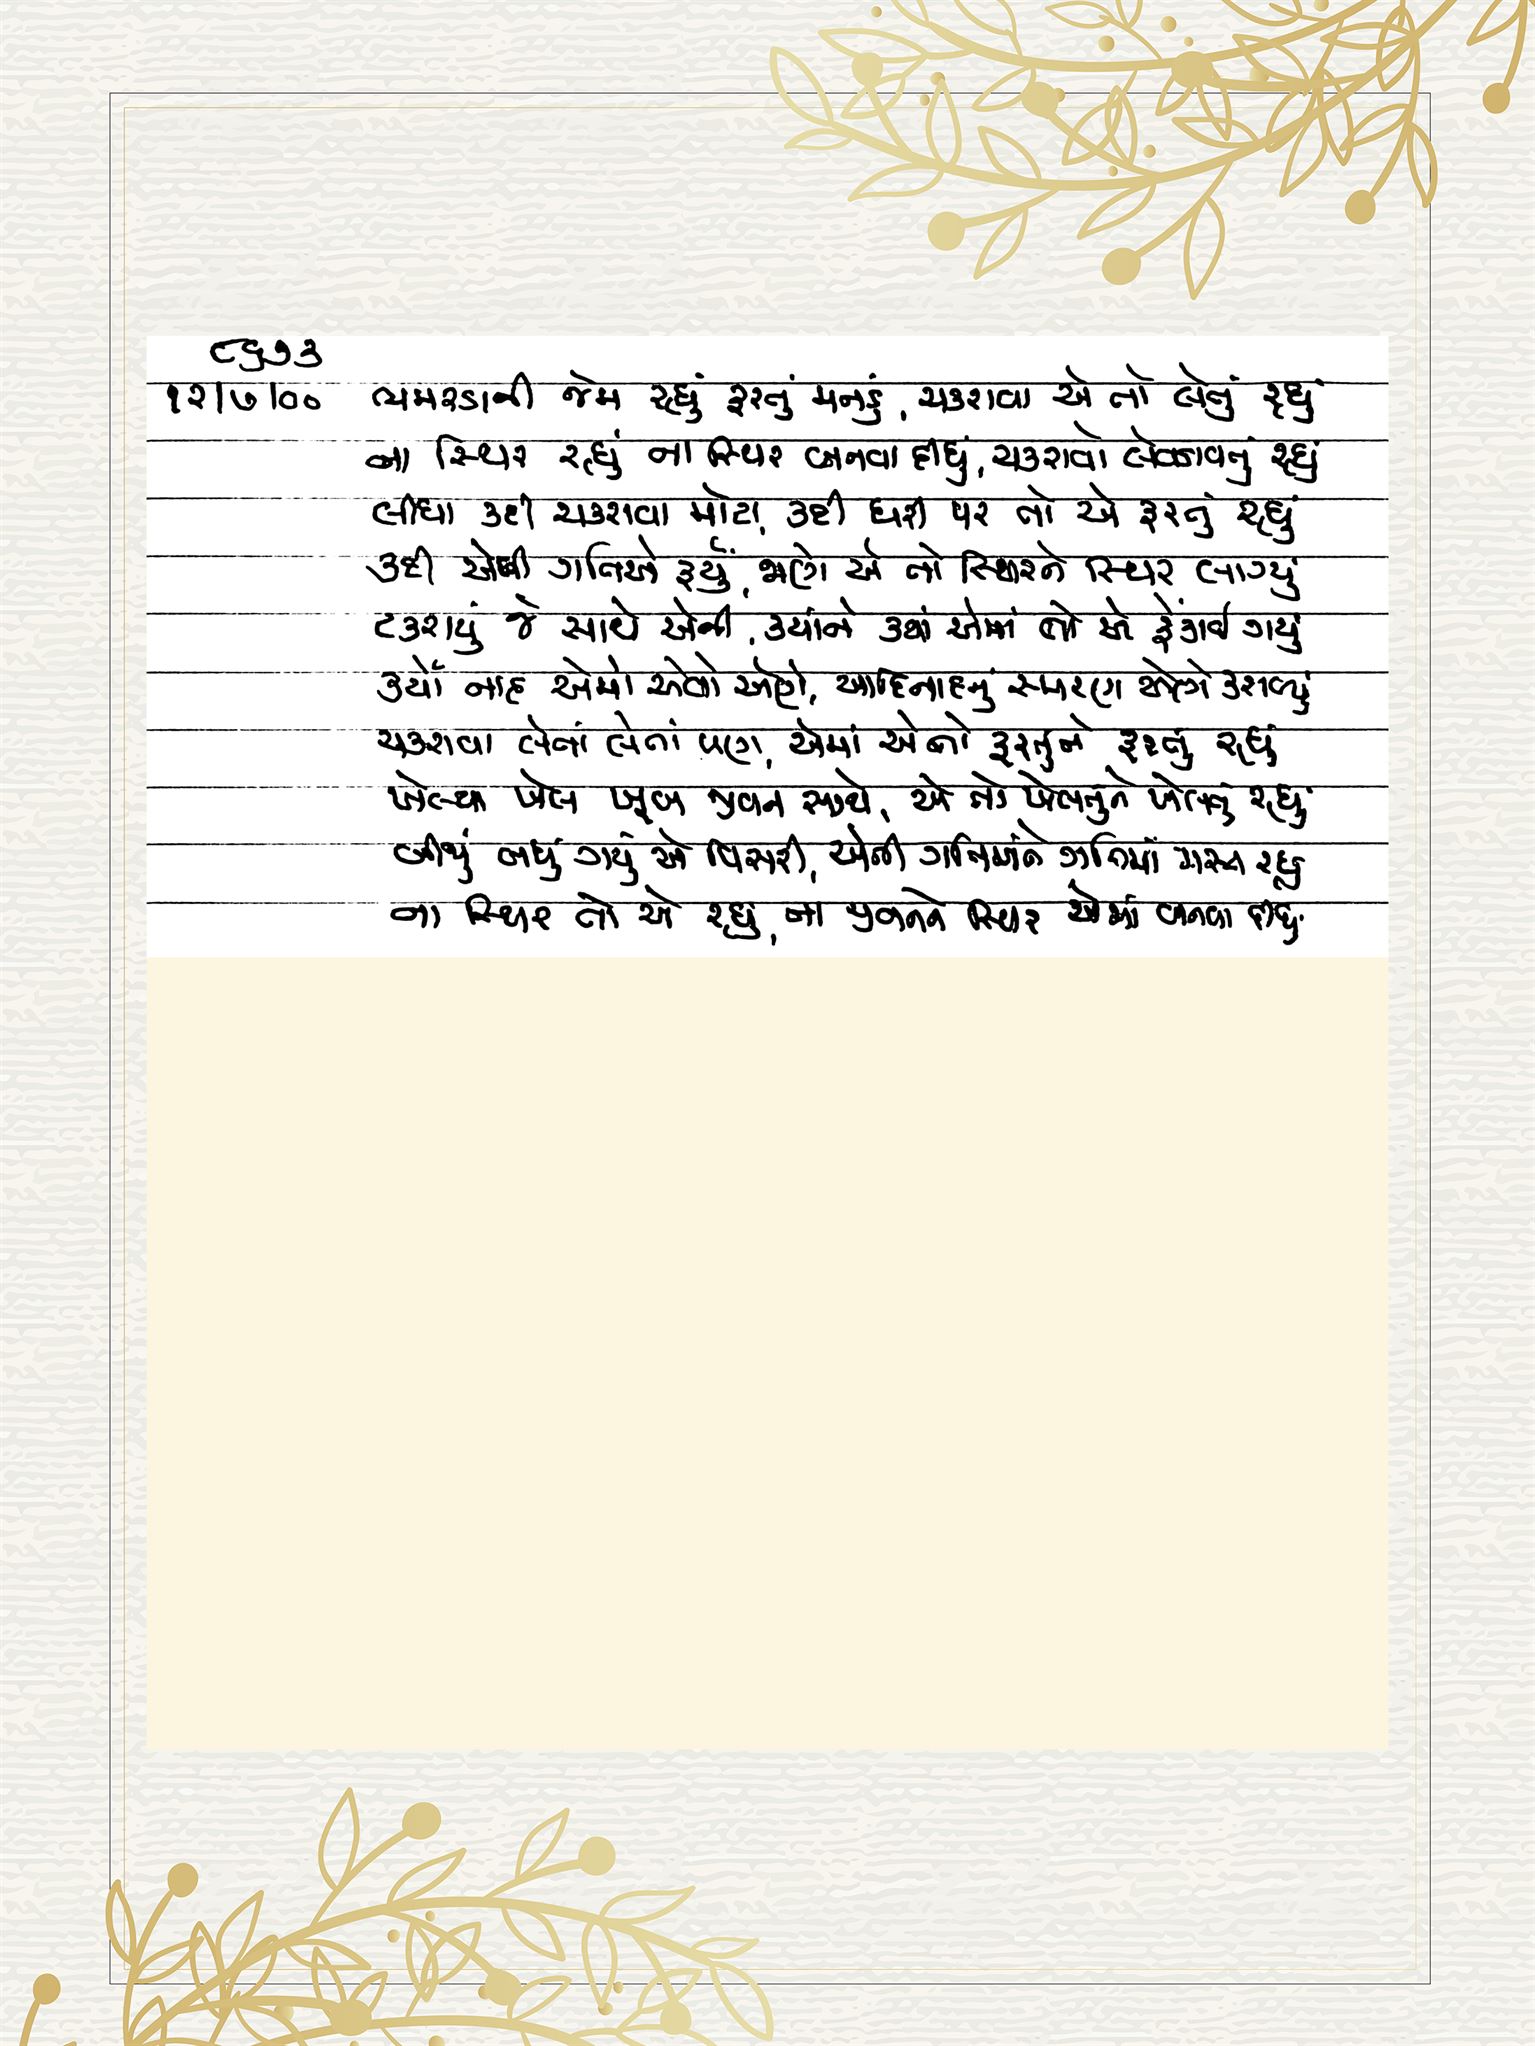 ૮૬૭૩
૧૨/૭/૦૦ ભમરડાની જેમ રહ્યું ફરતું મનડું, ચકરાવા એ તો લેતું રહ્યું
ના સ્થિર રહ્યું ના સ્થિર બનવા દીધું, ચકરાવો લેવડાવતું રહ્યું
લીધા કદી ચકરાવા મોટા, કદી ધરી પર તો એ ફરતું રહ્યું
કદી એવી ગતિએ ફર્યું, જાણે એ તો સ્થિરને સ્થિર લાગ્યું
ટકરાયું જે સાથે એની, ક્યાંને ક્યાં એમાં તો એ ફેંકાઈ ગયું
કર્યો નાદ એમાં એવો એણે, આદિનાદનું સ્મરણ એણે કરાવ્યું
ચકરાવા લેતાં લેતાં પણ, એમાં એ તો ફરતુંને ફરતું રહ્યું
ખેલ્યા ખેલ ખૂબ જીવન સાથે, એ તો ખેલતુંને ખેલતું રહ્યું
બીજું બધું ગયું એ વિસરી, એની ગતિમાંને ગતિમાં મસ્ત રહ્યું
ના સ્થિર તો એ રહ્યું, ના જીવનને સ્થિર એમાં બનવા દીધું